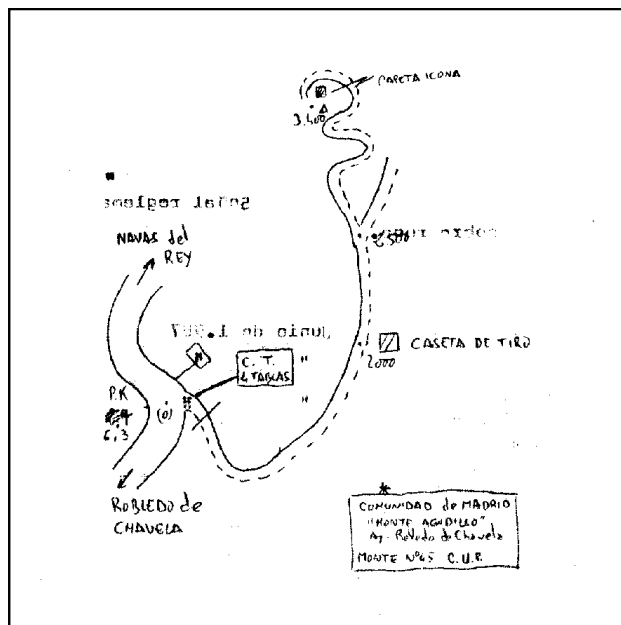 CASETA ICONA
3.400
Señal reglame
NAVAS del
REY
2.500
Junio de 1.987
C. T.
4 TABLAS
"
"
CASETA DE TIRO
2000
P.K
6,3
(0)
ROBLEDO de
CHAVELA
*
COMUNIDAD de MADRID
"MONTE AGUDILLO"
Ay. Robledo de Chavela
MONTE Nº45 C.U.P.